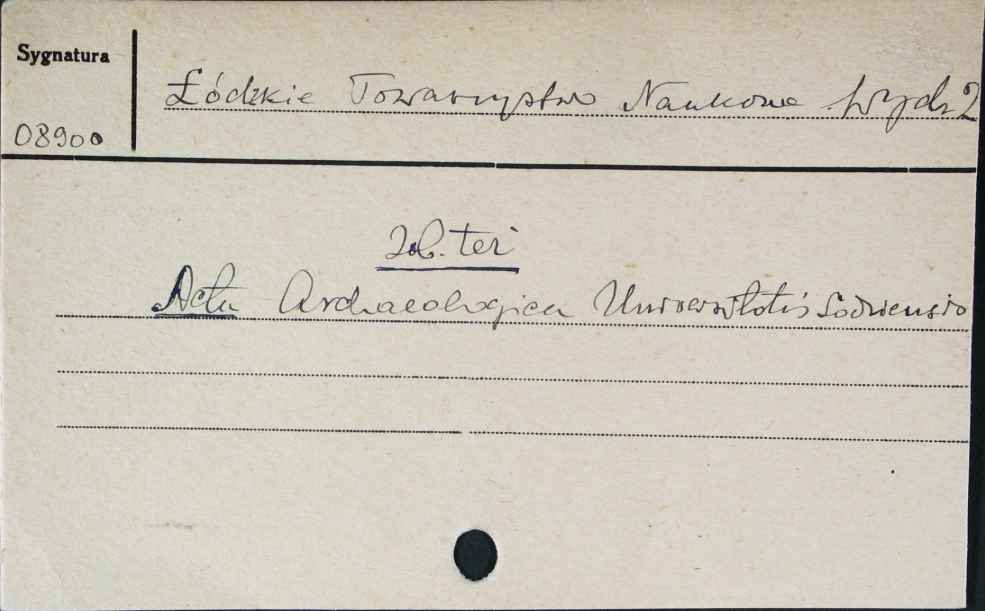 Sygnatura
Łódzkie Towarzystwo Naukowe Wydz 2
08900
zob. też
Acta Archaeologica Universitatis Lodziensis